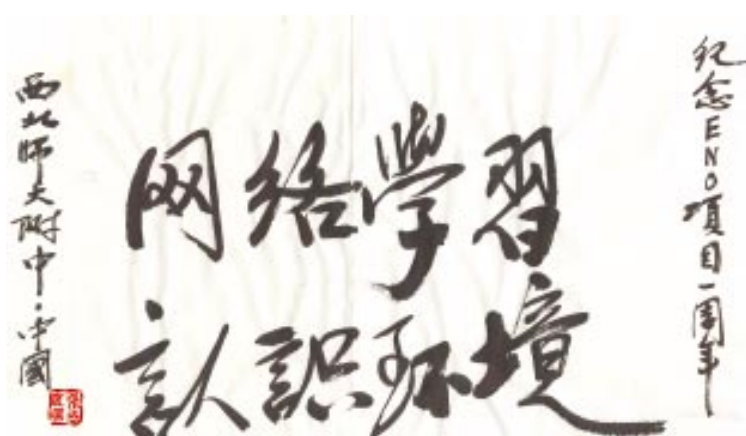 纪念ENO项目一周年
网络學習
认识环境
西北师大附中·中國